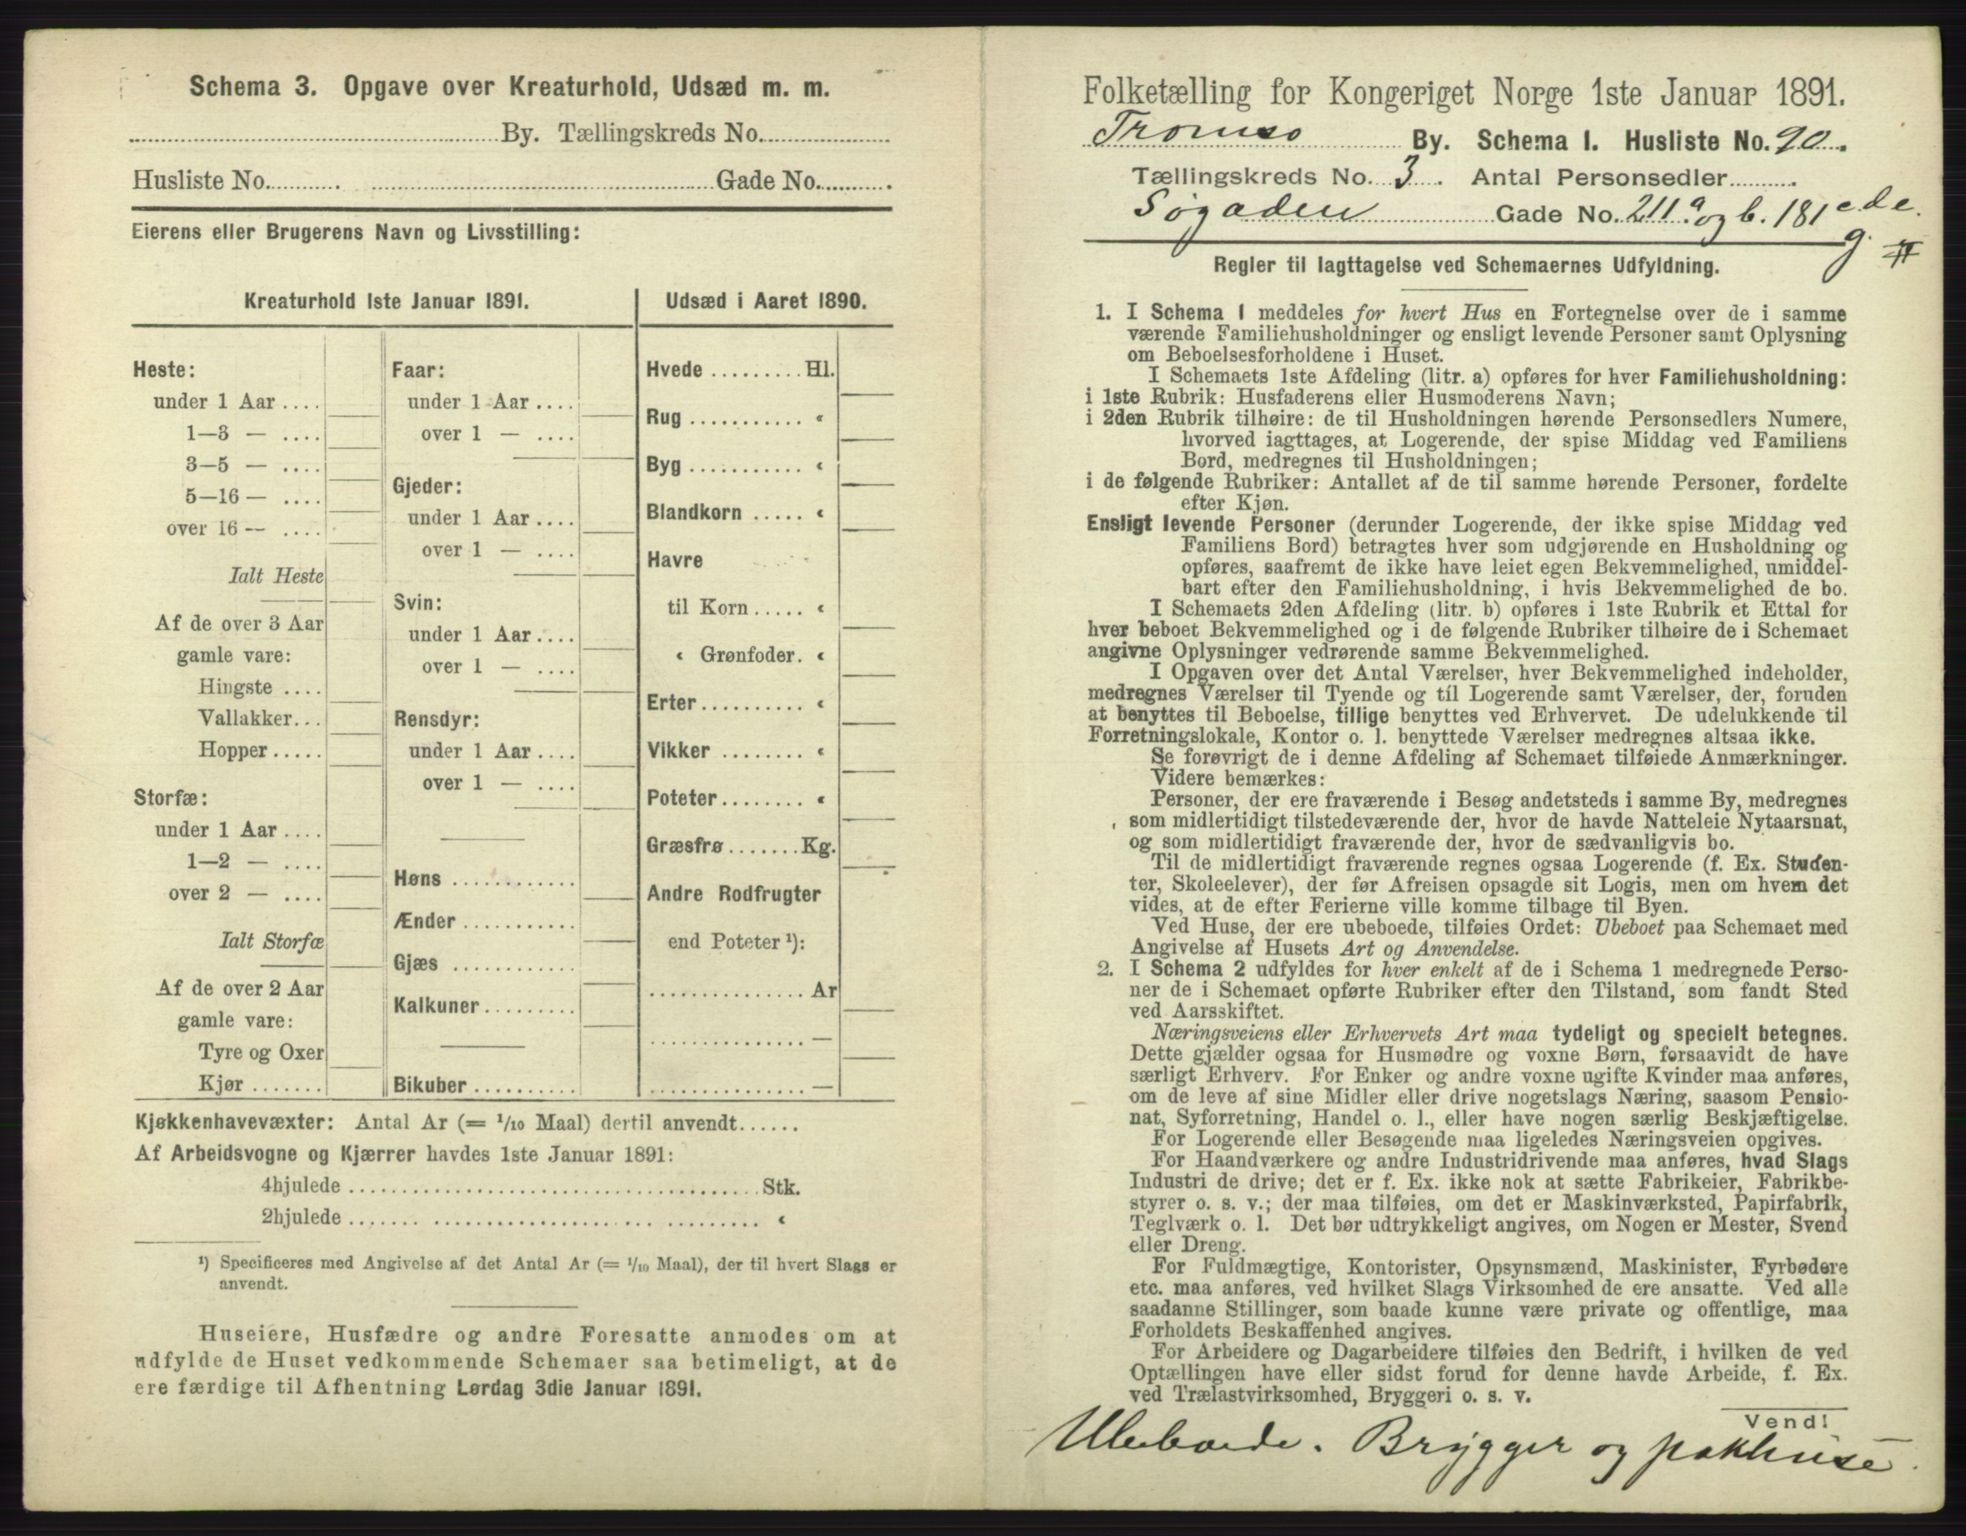 Schema 3. Opgave over Kreaturhold, Udsæd m. m.
By. Tællingskreds No.
Husliste No. Gade No.
Eierens eller Brugerens Navn og Livsstilling:
Kreaturhold 1ste Januar 1891.
Heste:
under 1 Aar ....
1—3 — ....
3—5 — ....
5—16 — ....
over 16 — ....
Ialt Heste
Af de over 3 Aar
gamle vare:
Hingste ....
Vallakker...
Hopper .....
Storfæ:
under 1 Aar ....
1—2 — ....
over 2 — ....
Ialt Storfæ
Af de over 2 Aar
gamle vare:
Tyre og Oxer
Kjør .......
Faar:
under 1 Aar ....
over 1 — ....
Gjeder:
under 1 Aar ....
over 1 — ....
Svin:
under 1 Aar ....
over 1 — ....
Rensdyr:
under 1 Aar ....
over 1 — ....
Høns ............
Ænder ...........
Gjæs ............
Kalkuner .........
Bikuber ..........
Udsæd i Aaret 1890.
Hvede ......... Hl.
Rug ........... «
Byg ........... «
Blandkorn ..... «
Havre
til Korn ..... «
« Grønfoder. «
Erter .......... «
Vikker ......... «
Poteter ........ «
Græsfrø ....... Kg.
Andre Rodfrugter
end Poteter ¹):
............... Ar
............... —
............... —
Kjøkkenhavevæxter: Antal Ar (= 1/10 Maal) dertil anvendt......
Af Arbeidsvogne og Kjærrer havdes 1ste Januar 1891:
4hjulede ........................................ Stk.
2hjulede ........................................ «
¹) Specificeres med Angivelse af det Antal Ar (= 1/10 Maal), der til hvert Slags er
anvendt.
Huseiere, Husfædre og andre Foresatte anmodes om at
udfylde de Huset vedkommende Schemaer saa betimeligt, at de
ere færdige til Afhentning Lørdag 3die Januar 1891.
Folketælling for Kongeriget Norge 1ste Januar 1891.
Tromsø By. Schema 1. Husliste No. 90.
Tællingskreds No. 3. Antal Personsedler
Søgaden Gade No. 211 a og b. 181 c. d. e.
g. #
Regler til Iagttagelse ved Schemaernes Udfyldning.
1. I Schema 1 meddeles for hvert Hus en Fortegnelse over de i samme
værende Familiehusholdninger og ensligt levende Personer samt Oplysning
om Beboelsesforholdene i Huset.
I Schemaets 1ste Afdeling (litr. a) opføres for hver Familiehusholdning:
i 1ste Rubrik: Husfaderens eller Husmoderens Navn;
i 2den Rubrik tilhøire: de til Husholdningen hørende Personsedlers Numere,
hvorved iagttages, at Logerende, der spise Middag ved Familiens
Bord, medregnes til Husholdningen;
i de følgende Rubriker: Antallet af de til samme hørende Personer, fordelte
efter Kjøn.
Ensligt levende Personer (derunder Logerende, der ikke spise Middag ved
Familiens Bord) betragtes hver som udgjørende en Husholdning og
opføres, saafremt de ikke have leiet egen Bekvemmelighed, umiddel-
bart efter den Familiehusholdning, i hvis Bekvemmelighed de bo.
I Schemaets 2den Afdeling (litr. b) opføres i 1ste Rubrik et Ettal for
hver beboet Bekvemmelighed og i de følgende Rubriker tilhøire de i Schemaet
angivne Oplysninger vedrørende samme Bekvemmelighed.
I Opgaven over det Antal Værelser, hver Bekvemmelighed indeholder,
medregnes Værelser til Tyende og til Logerende samt Værelser, der, foruden
at benyttes til Beboelse, tillige benyttes ved Erhvervet. De udelukkende til
Forretningslokale, Kontor o. l. benyttede Værelser medregnes altsaa ikke.
Se forøvrigt de i denne Afdeling af Schemaet tilføiede Anmærkninger.
Videre bemærkes:
Personer, der ere fraværende i Besøg andetsteds i samme By, medregnes
som midlertidigt tilstedeværende der, hvor de havde Natteleie Nytaarsnat,
og som midlertidigt fraværende der, hvor de sædvanligvis bo.
Til de midlertidigt fraværende regnes ogsaa Logerende (f. Ex. Studen-
ter, Skoleelever), der før Afreisen opsagde sit Logis, men om hvem det
vides, at de efter Ferierne ville komme tilbage til Byen.
Ved Huse, der ere ubeboede, tilføies Ordet: Ubeboet paa Schemaet med
Angivelse af Husets Art og Anvendelse.
2. I Schema 2 udfyldes for hver enkelt af de i Schema 1 medregnede Perso-
ner de i Schemaet opførte Rubriker efter den Tilstand, som fandt Sted
ved Aarsskiftet.
Næringsveiens eller Erhvervets Art maa tydeligt og specielt betegnes.
Dette gjælder ogsaa for Husmødre og voxne Børn, forsaavidt de have
særligt Erhverv. For Enker og andre voxne ugifte Kvinder maa anføres,
om de leve af sine Midler eller drive nogetslags Næring, saasom Pensio-
nat, Syforretning, Handel o. l., eller have nogen særlig Beskjæftigelse.
For Logerende eller Besøgende maa ligeledes Næringsveien opgives.
For Haandværkere og andre Industridrivende maa anføres, hvad Slags
Industri de drive; det er f. Ex. ikke nok at sætte Fabrikeier, Fabrikbe-
styrer o. s. v.; der maa tilføies, om det er Maskinværksted, Papirfabrik,
Teglværk o. l. Det bør udtrykkeligt angives, om Nogen er Mester, Svend
eller Dreng.
For Fuldmægtige, Kontorister, Opsynsmænd, Maskinister, Fyrbødere
etc. maa anføres, ved hvilket Slags Virksomhed de ere ansatte. Ved alle
saadanne Stillinger, som baade kunne være private og offentlige, maa
Forholdets Beskaffenhed angives.
For Arbeidere og Dagarbeidere tilføies den Bedrift, i hvilken de ved
Optællingen have eller sidst forud for denne havde Arbeide, f. Ex.
ved Trælastvirksomhed, Bryggeri o. s. v.
Vend!
Ubeboede. Brygger og pakhuse.